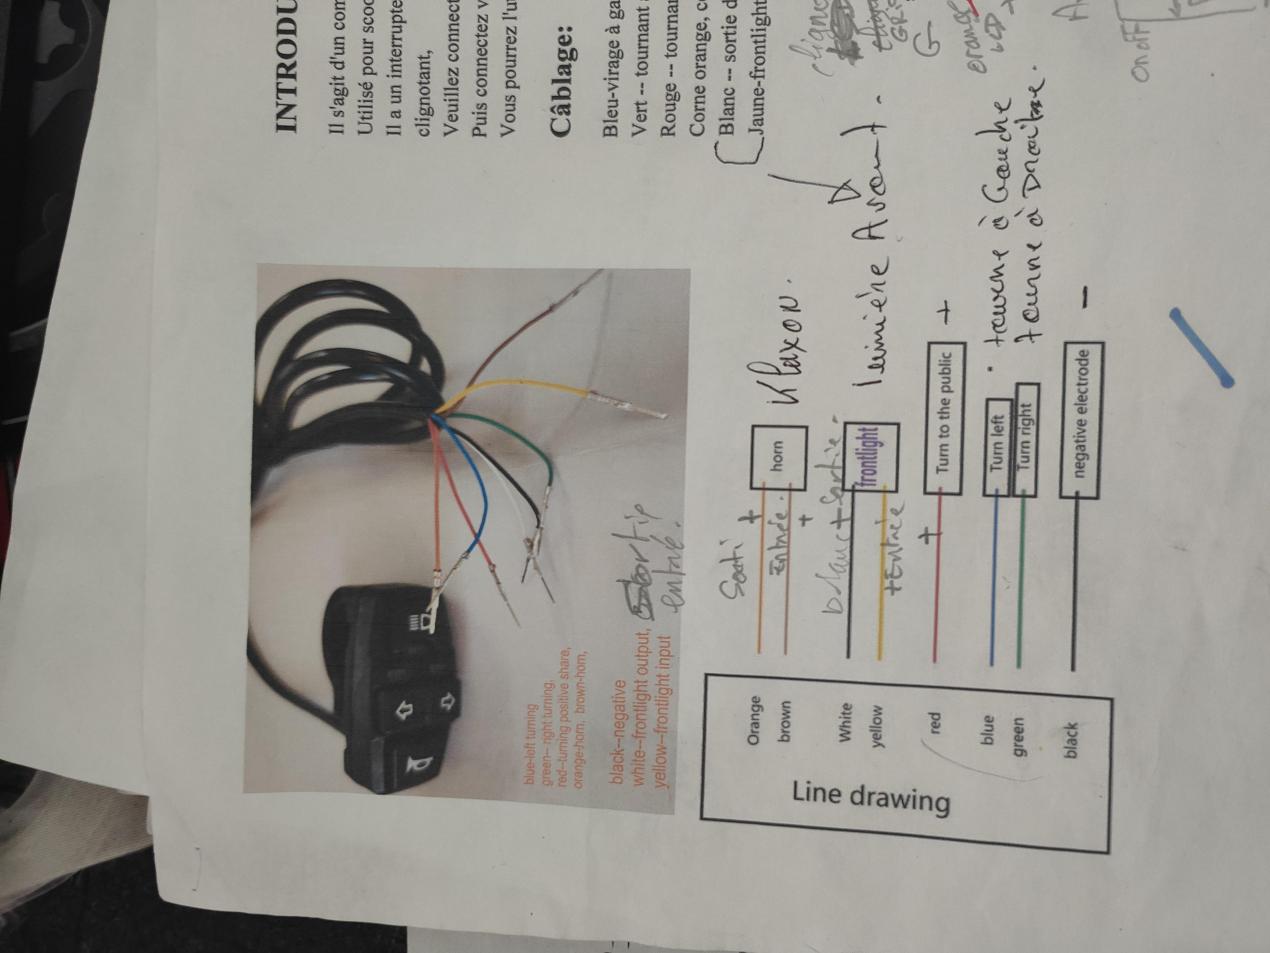 INTRODU
Il s'agit d'un com
Utilisé pour scoo
Il a un interrupte
clignotant,
Veuillez connect
Puis connectez v
Vous pourrez l'u
Câblage:
Bleu-virage à ga
Vert -- tournant
Rouge -- tournan
Corne orange, c
Blanc -- sortie d
Jaune-frontlight
blue-left turning
green-- right turning,
red--turning positive share,
orange-horn, brown-horn,
black--negative
white--frontlight output, Sortie
yellow--frontlight input entré.
Line drawing
Orange Sorti + horn Klaxon.
brown Entrée. +
White blanc + Sortie. frontlight lumière Avant.
yellow + Entrée
red + Turn to the public +
blue Turn left tourne à Gauche
green Turn right tourne à Droite.
black negative electrode -
G
orange
on off